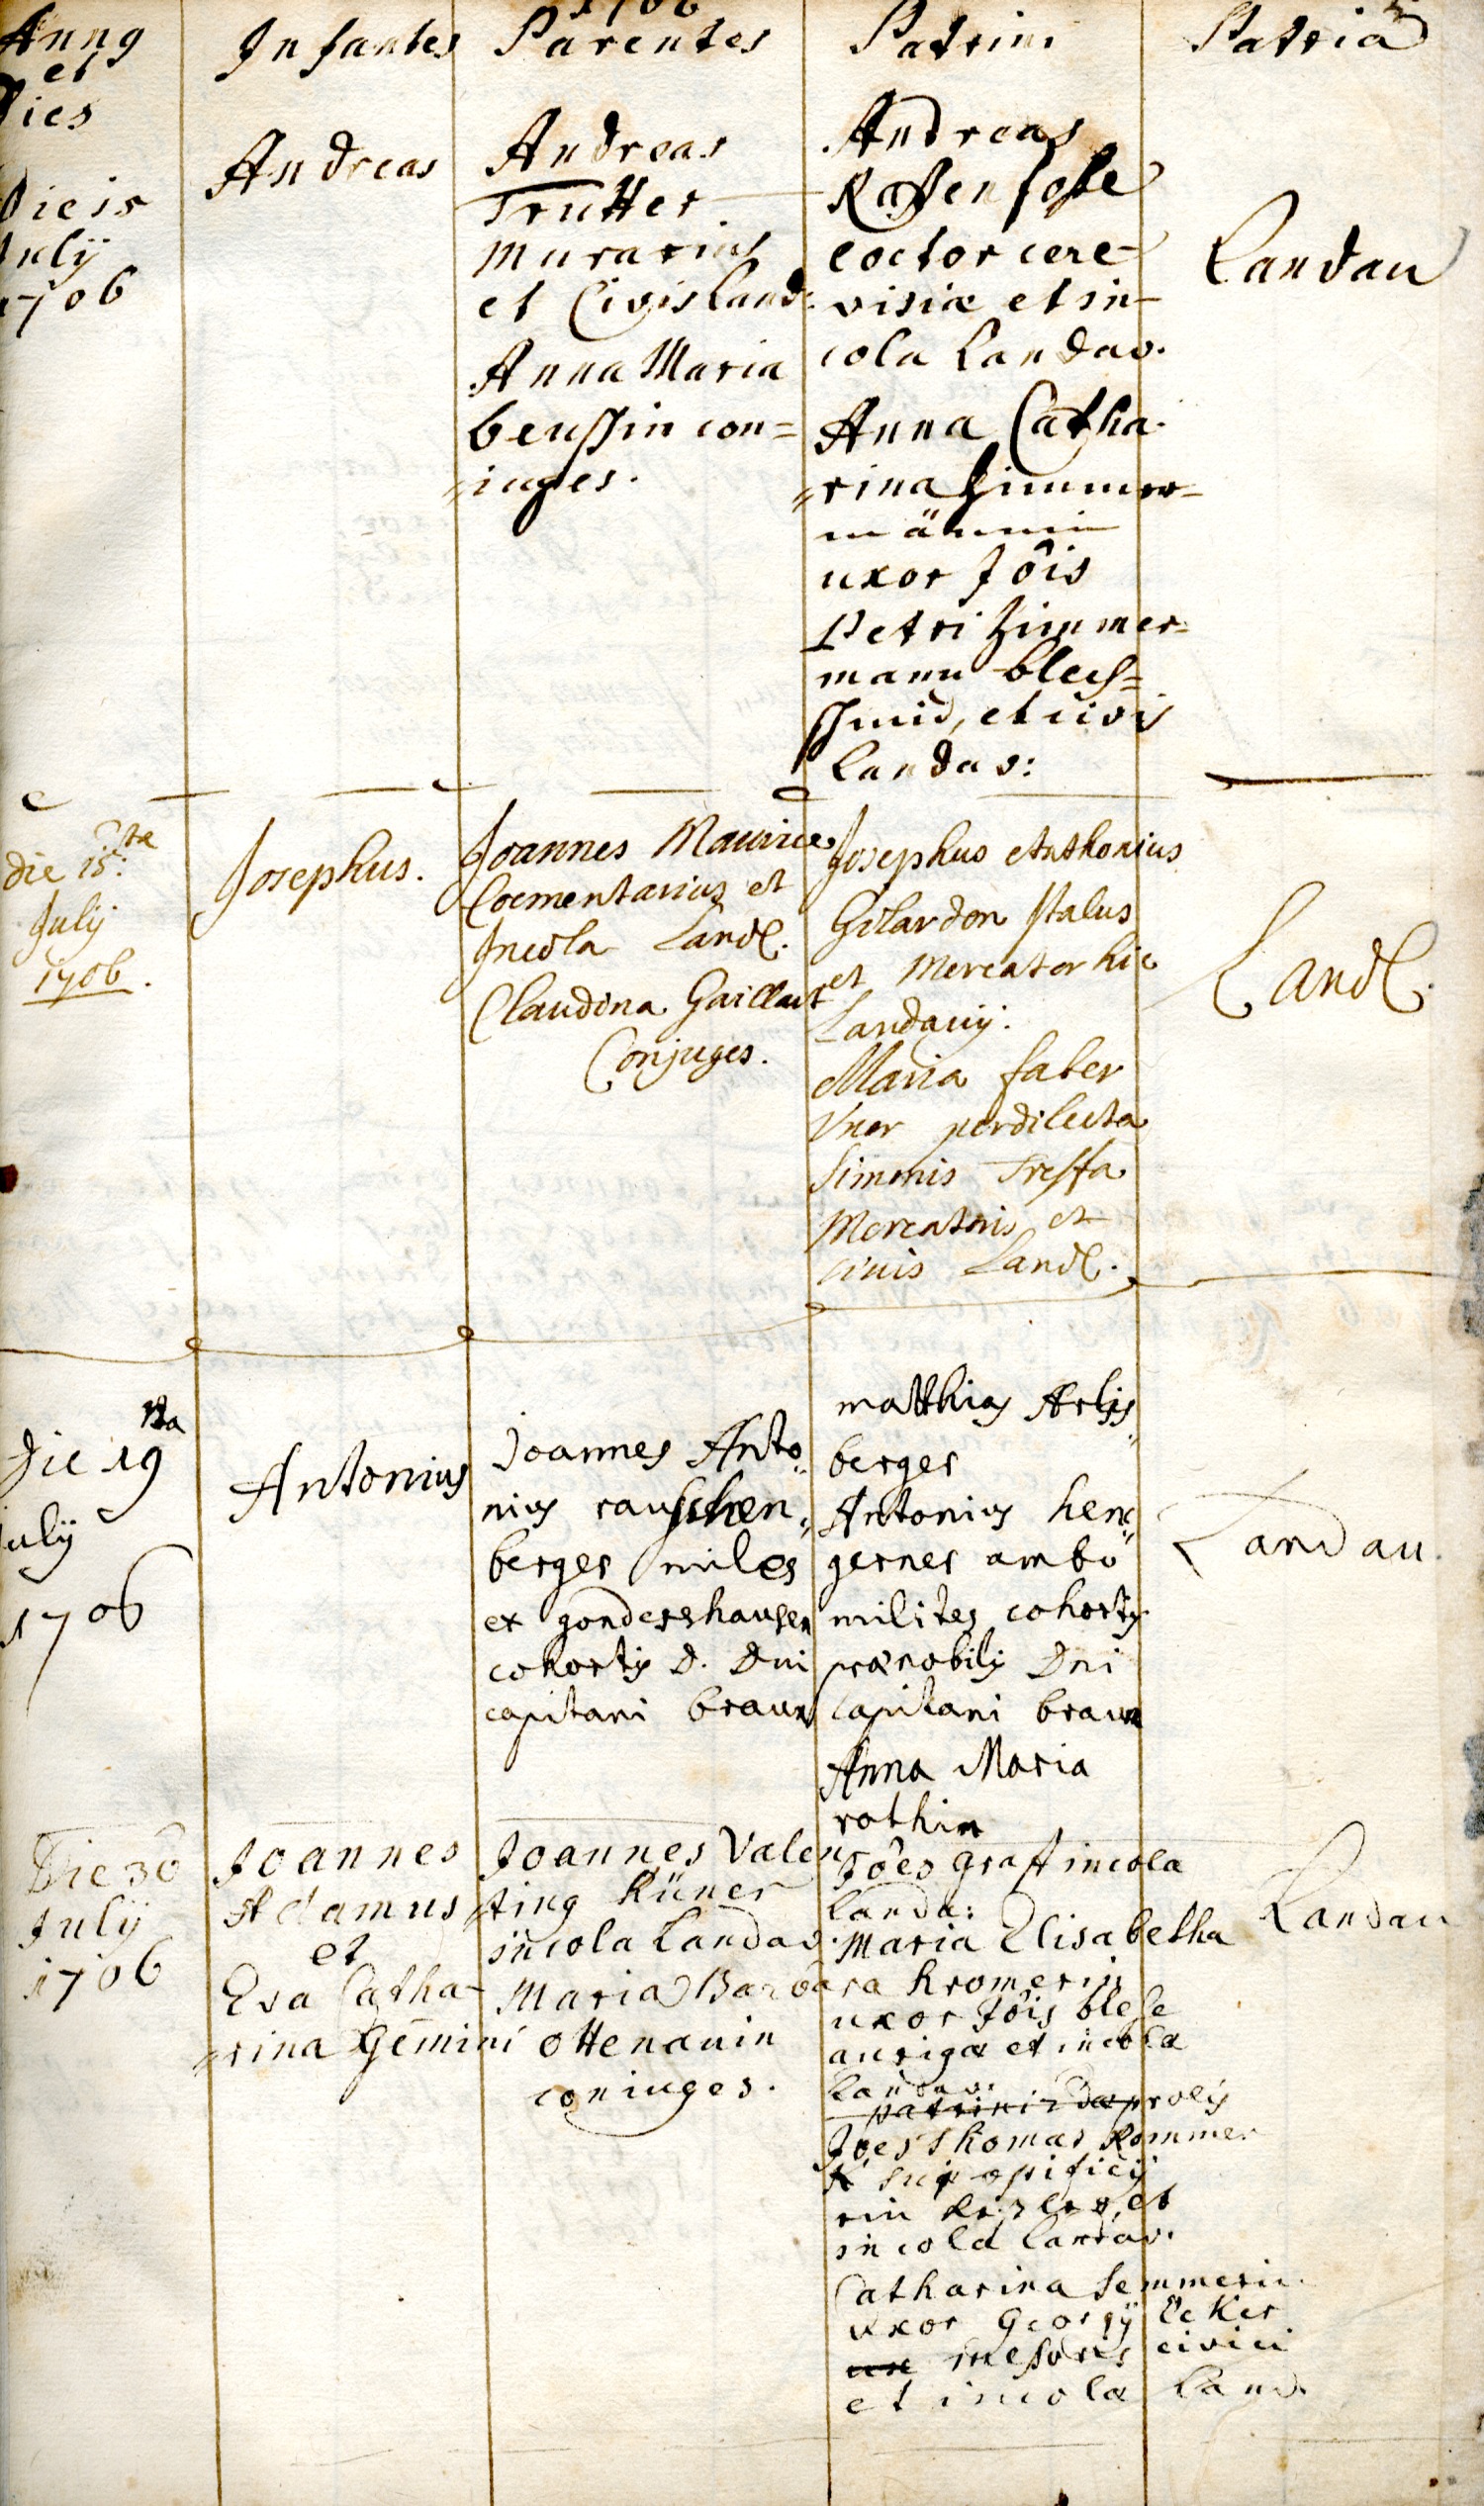 1706
Anng
et
Dies
Infantes
Parentes
Patrini
Patria
Die 15
July
1706
Andreas
Andreas
Trutter
murarius
et Civis Land:
Anna Maria
beussin con=
=iuges.
Andreas
coctor cere-
visiæ et in-
cola Landav.
Anna Catha-
=rina Zimmer=
männin
uxor Jôis
Petri Zimmer=
mann blech=
schmid, et civis
Landav:
Landau
die 15:ta
July
1706.
Josephus.
Joannes Maurice
Coementarius et
Incola Land.
Claudina Gaillart
Conjuges.
Josephus Anthonius
Gilardon Italus
et Mercator hic
Landavij.
Maria faber
Uxor perdilecta
Simonis Tresta
Mercatoris et
civis Land.
Land.
Die 19na
July
1706
Antonius
Joannes Anto=
nius rauschen=
berger miles
ex gondershausen
cohortis D. Dni
capitani braun
matthias Arlss=
berger
Antonius hen=
gerner ambo
milites cohortis
prænobilis Dni
capitani braun
Anna Maria
rothin
Landau.
Die 30
July
1706
Joannes
Adamus
et
Eva Catha-
=rina Gemini
Joannes Valen
ting Küner
incola Landav.
Maria Barbara
Ottenauin
coniuges.
Jôes graff incola
Landa:
Maria Elisabetha
Kromerin
uxor Jôis blese
aurigæ et incolæ
Landav.
patrini 2dæ prolis
Joes Thomas Rommer
sui opificij
ein Kisler, et
incola Landav.
Catharina Semmerin
uxor Georgÿ Ecker
mesoris civici
et incolæ Land.
Landau